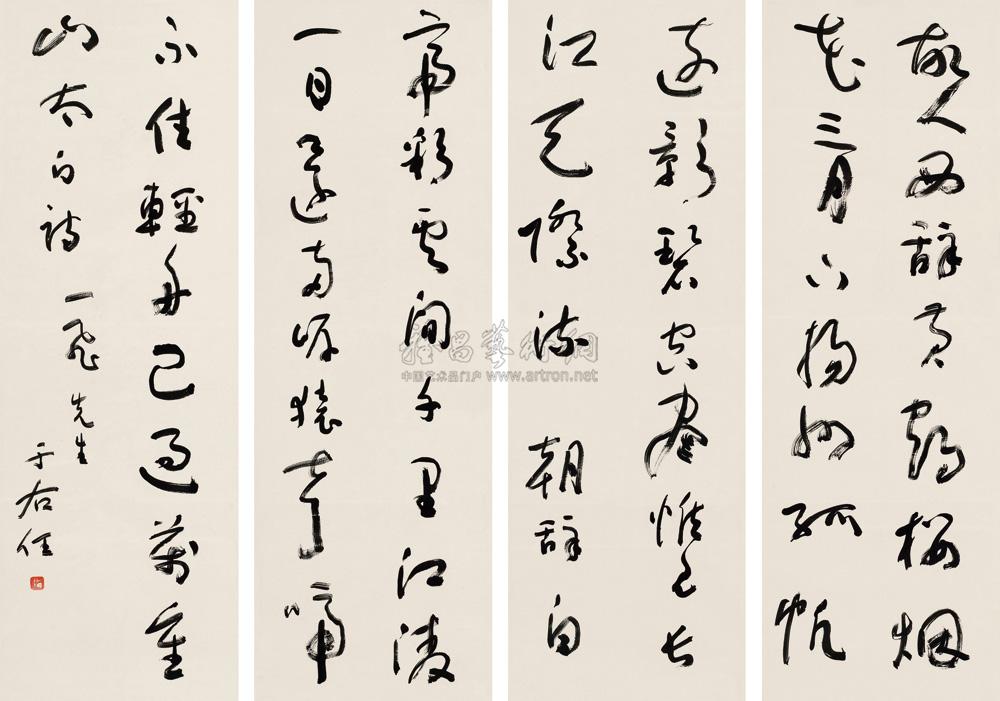 故人西辭黃鶴樓烟
花三月下揚州孤帆
遠影碧空盡惟見長
江天際流 朝辭白
帝彩雲間千里江陵
一日還兩岸猿聲啼
不住輕舟已過萬重
山太白詩
一飛先生
于右任
雅昌藝術網
中国艺术品门户 www.artron.net